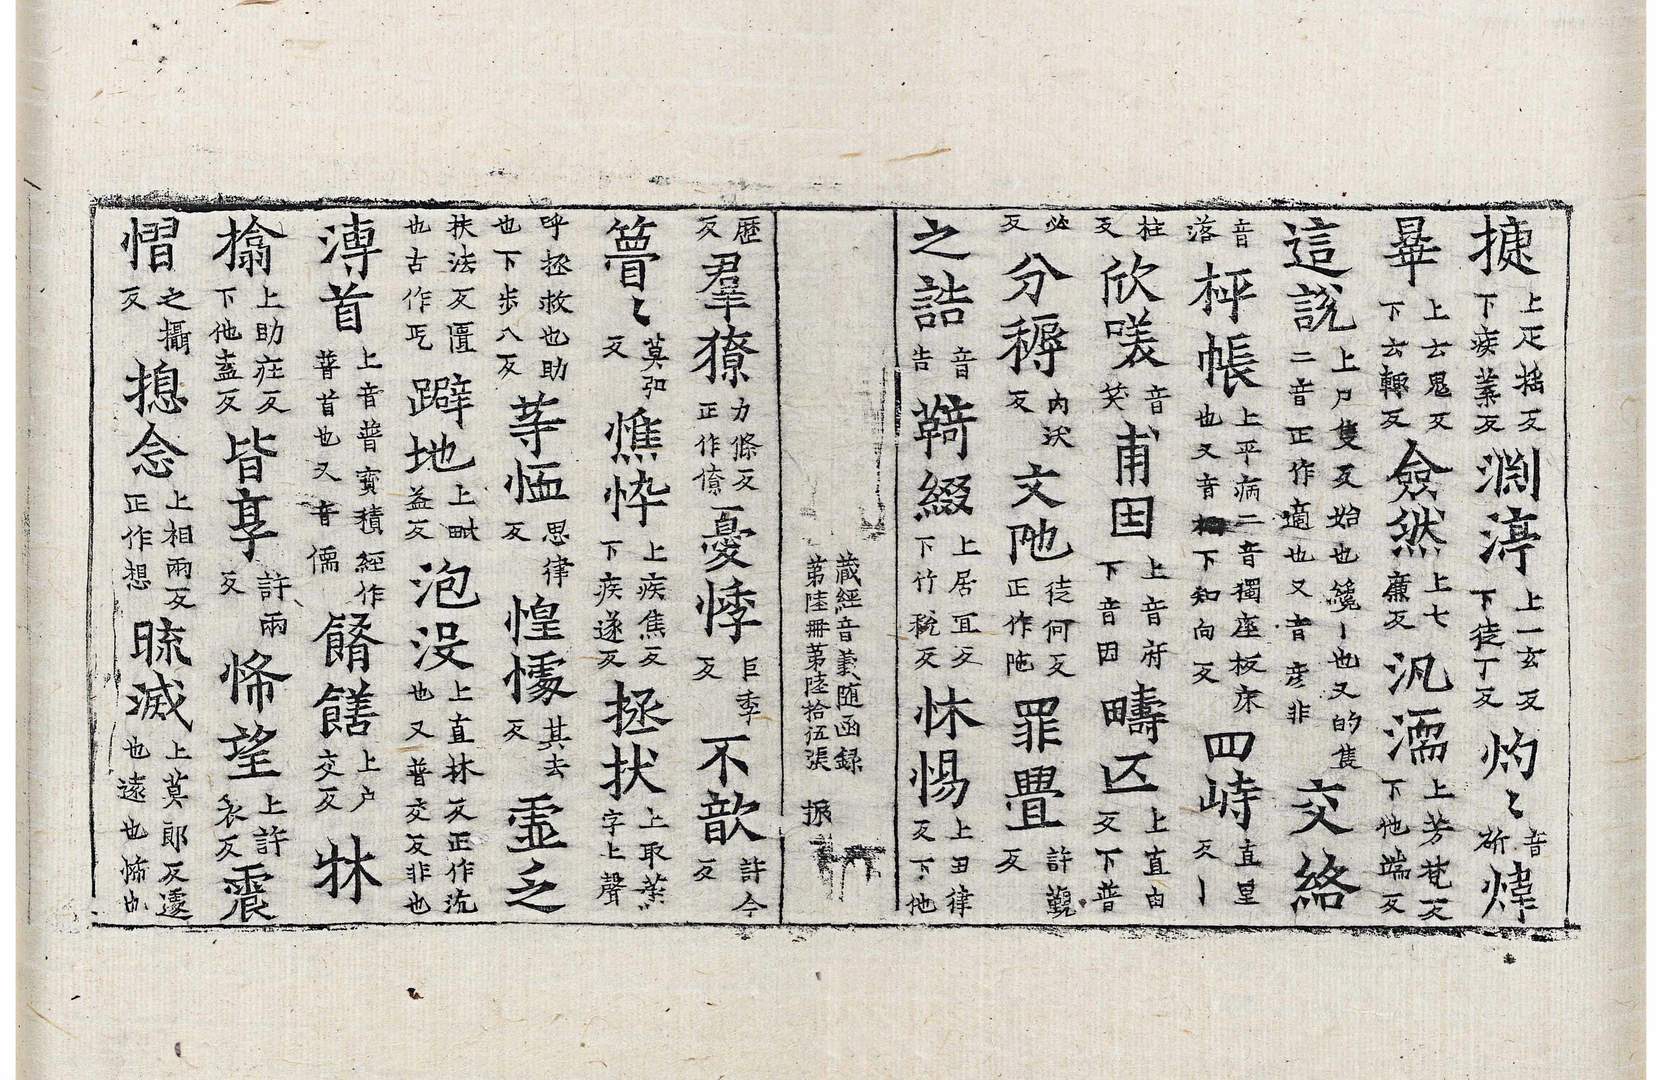 捷上疌揺反下疾葉反渊渟上一玄反下徒丁反灼〻音斫煒
曅上云鬼反下云輒反僉然上七廉反汎濡上芳梵反下他端反
這說上尸隻反始也纔丨也又的隻二音正作適也又音彦非交絡
音落枰帳上平病二音獨座板床也又音下知向反四峙直里反丨
柱反欣咲音笑甫因上音府下音因疇匹上直由反下普
必反分𥠇内沃反文陁徒何反正作陁罪疊許覲反
之誥音告羇綴上居宜反下竹稅反怵惕上丑律反下他
藏經音義随函録
第陸冊第陸拾伍張 振
歷反羣獠力條反正作僚憂悸巨季反不歆許今反
瞢〻莫弘反憔悴上疾焦反下疾遂反拯扶上取蒸字上聲
呼拯救也助也下步八反等恤思律反惶懅其去反虛乏
扶法反匱也古作丐躃地上毗益反泡没上直林反正作沉也又普交反非也
溥首上音普寳積經作普首也又音儒餚饍上户交反牀
搚上助庄反下他盍反皆享許兩反悕望上許衣反震
慴之攝反揔念上相兩反正作想䀮滅上莫郎反遽也遠也怖也